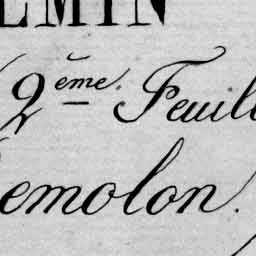 EMIN
2ème. Feuill
emolon.